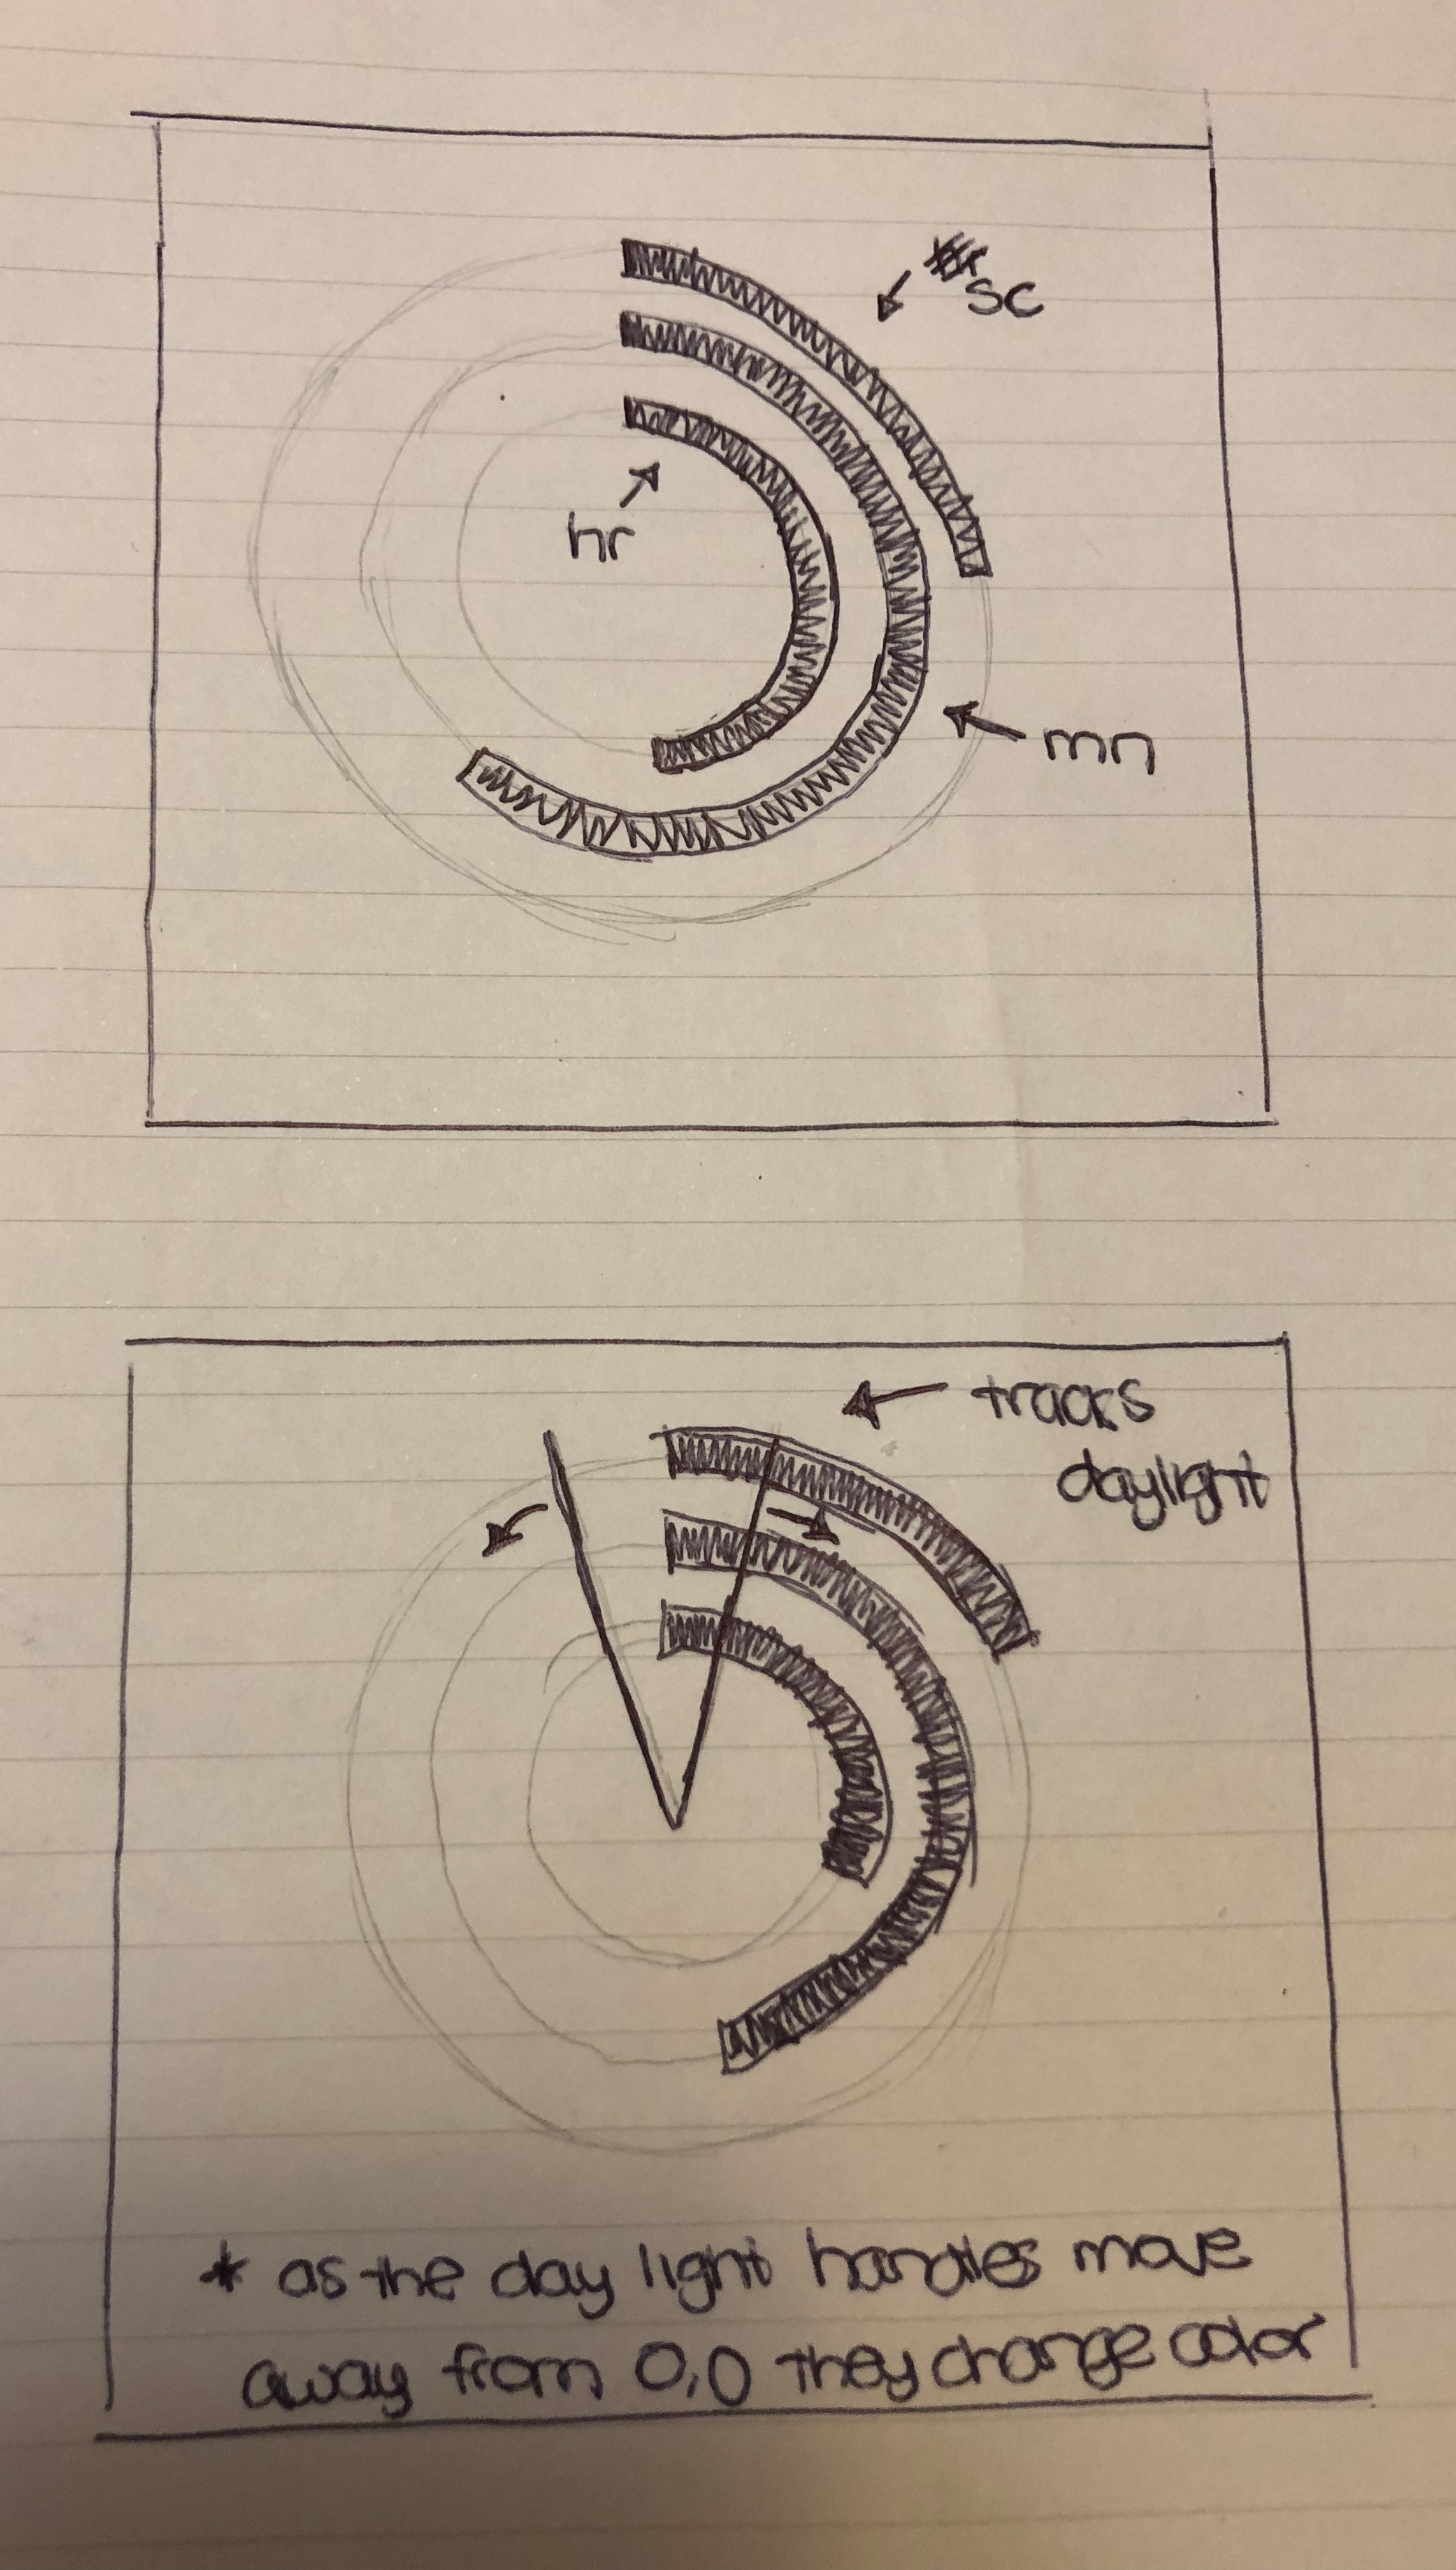 sc
hr
mn
tracks
daylight
* as the day light handles move
away from 0,0 they change color